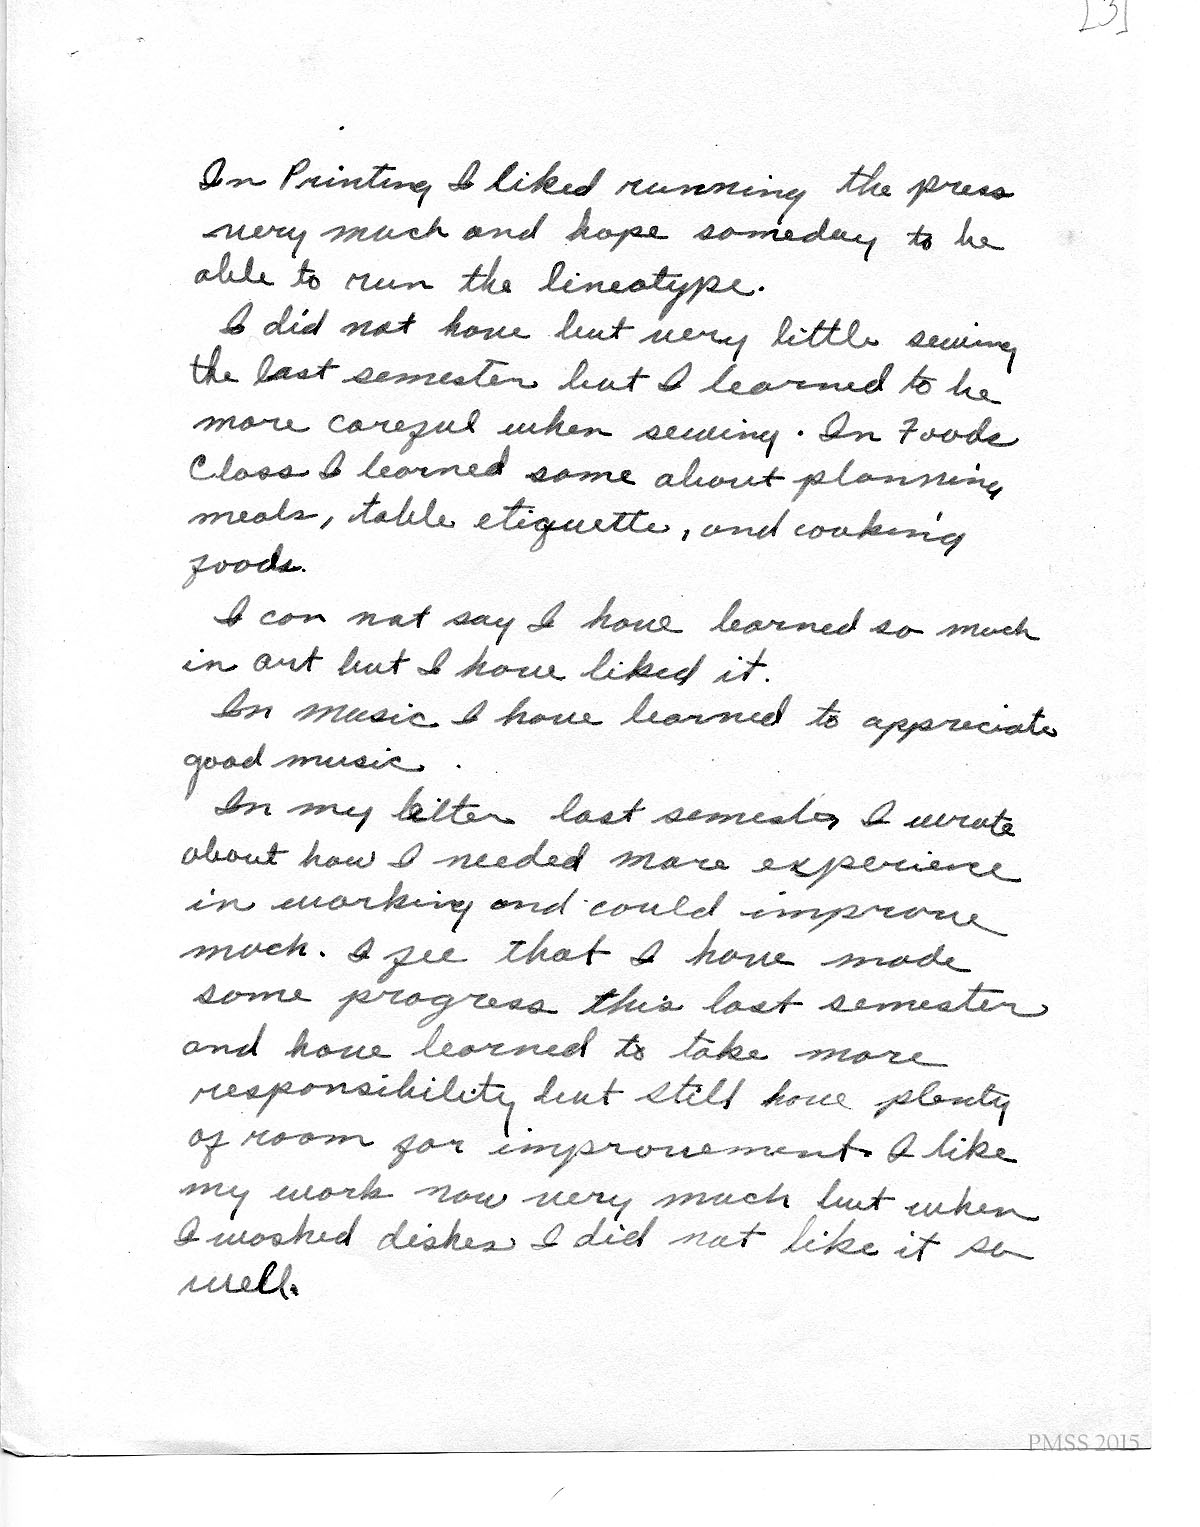 [3]
In Printing I liked running the press
very much and hope someday to be
able to run the lineotype.
I did not have but very little sewing
the last semester but I learned to be
more careful when sewing. In Foods
Class I learned some about planning
meals, table etiquette, and cooking
foods.
I can not say I have learned so much
in art but I have liked it.
In music I have learned to appreciate
good music.
In my letter last semester I wrote
about how I needed more experience
in working and could improve
much. I see that I have made
some progress this last semester
and have learned to take more
responsibility but still have plenty
of room for improvement. I like
my work now very much but when
I washed dishes I did not like it so
well.
PMSS 2015